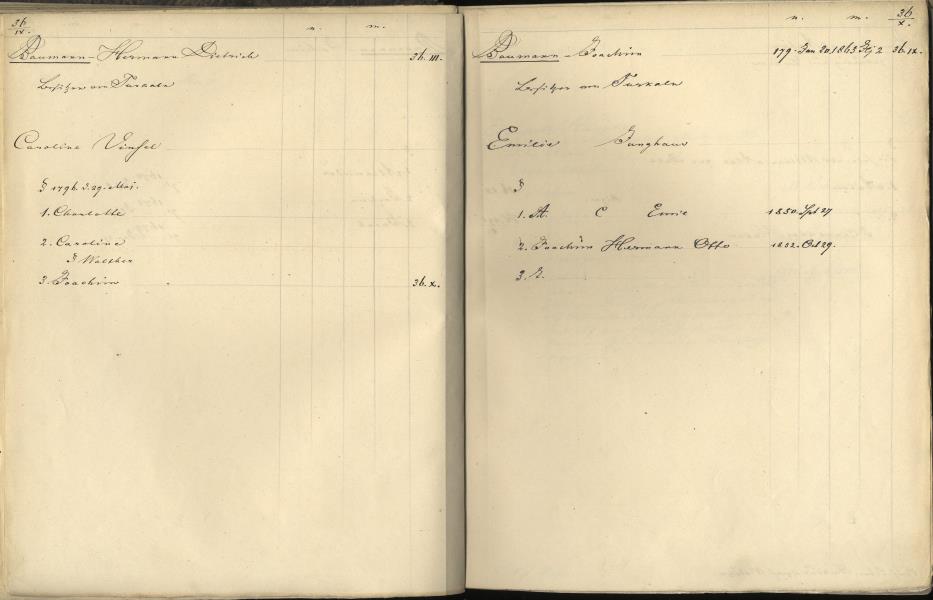 36
IX.
n. m.
Baumann - Hermann Dietrich 36. III.
Besitzer von
Caroline
§ 1796. d. 29. Mai.
1. Charlotte
2. Caroline
§ Walther
3. Joachim 36. X.
n. m. 36
X.
Baumann - Joachim 179 Jan 20. 1863 2 36. IX.
Besitzer von
Emilie Junghans
§
1. A. C Emil 1850. Spt 27
2. Joachim Hermann Otto 1852. Oct 29.
3.